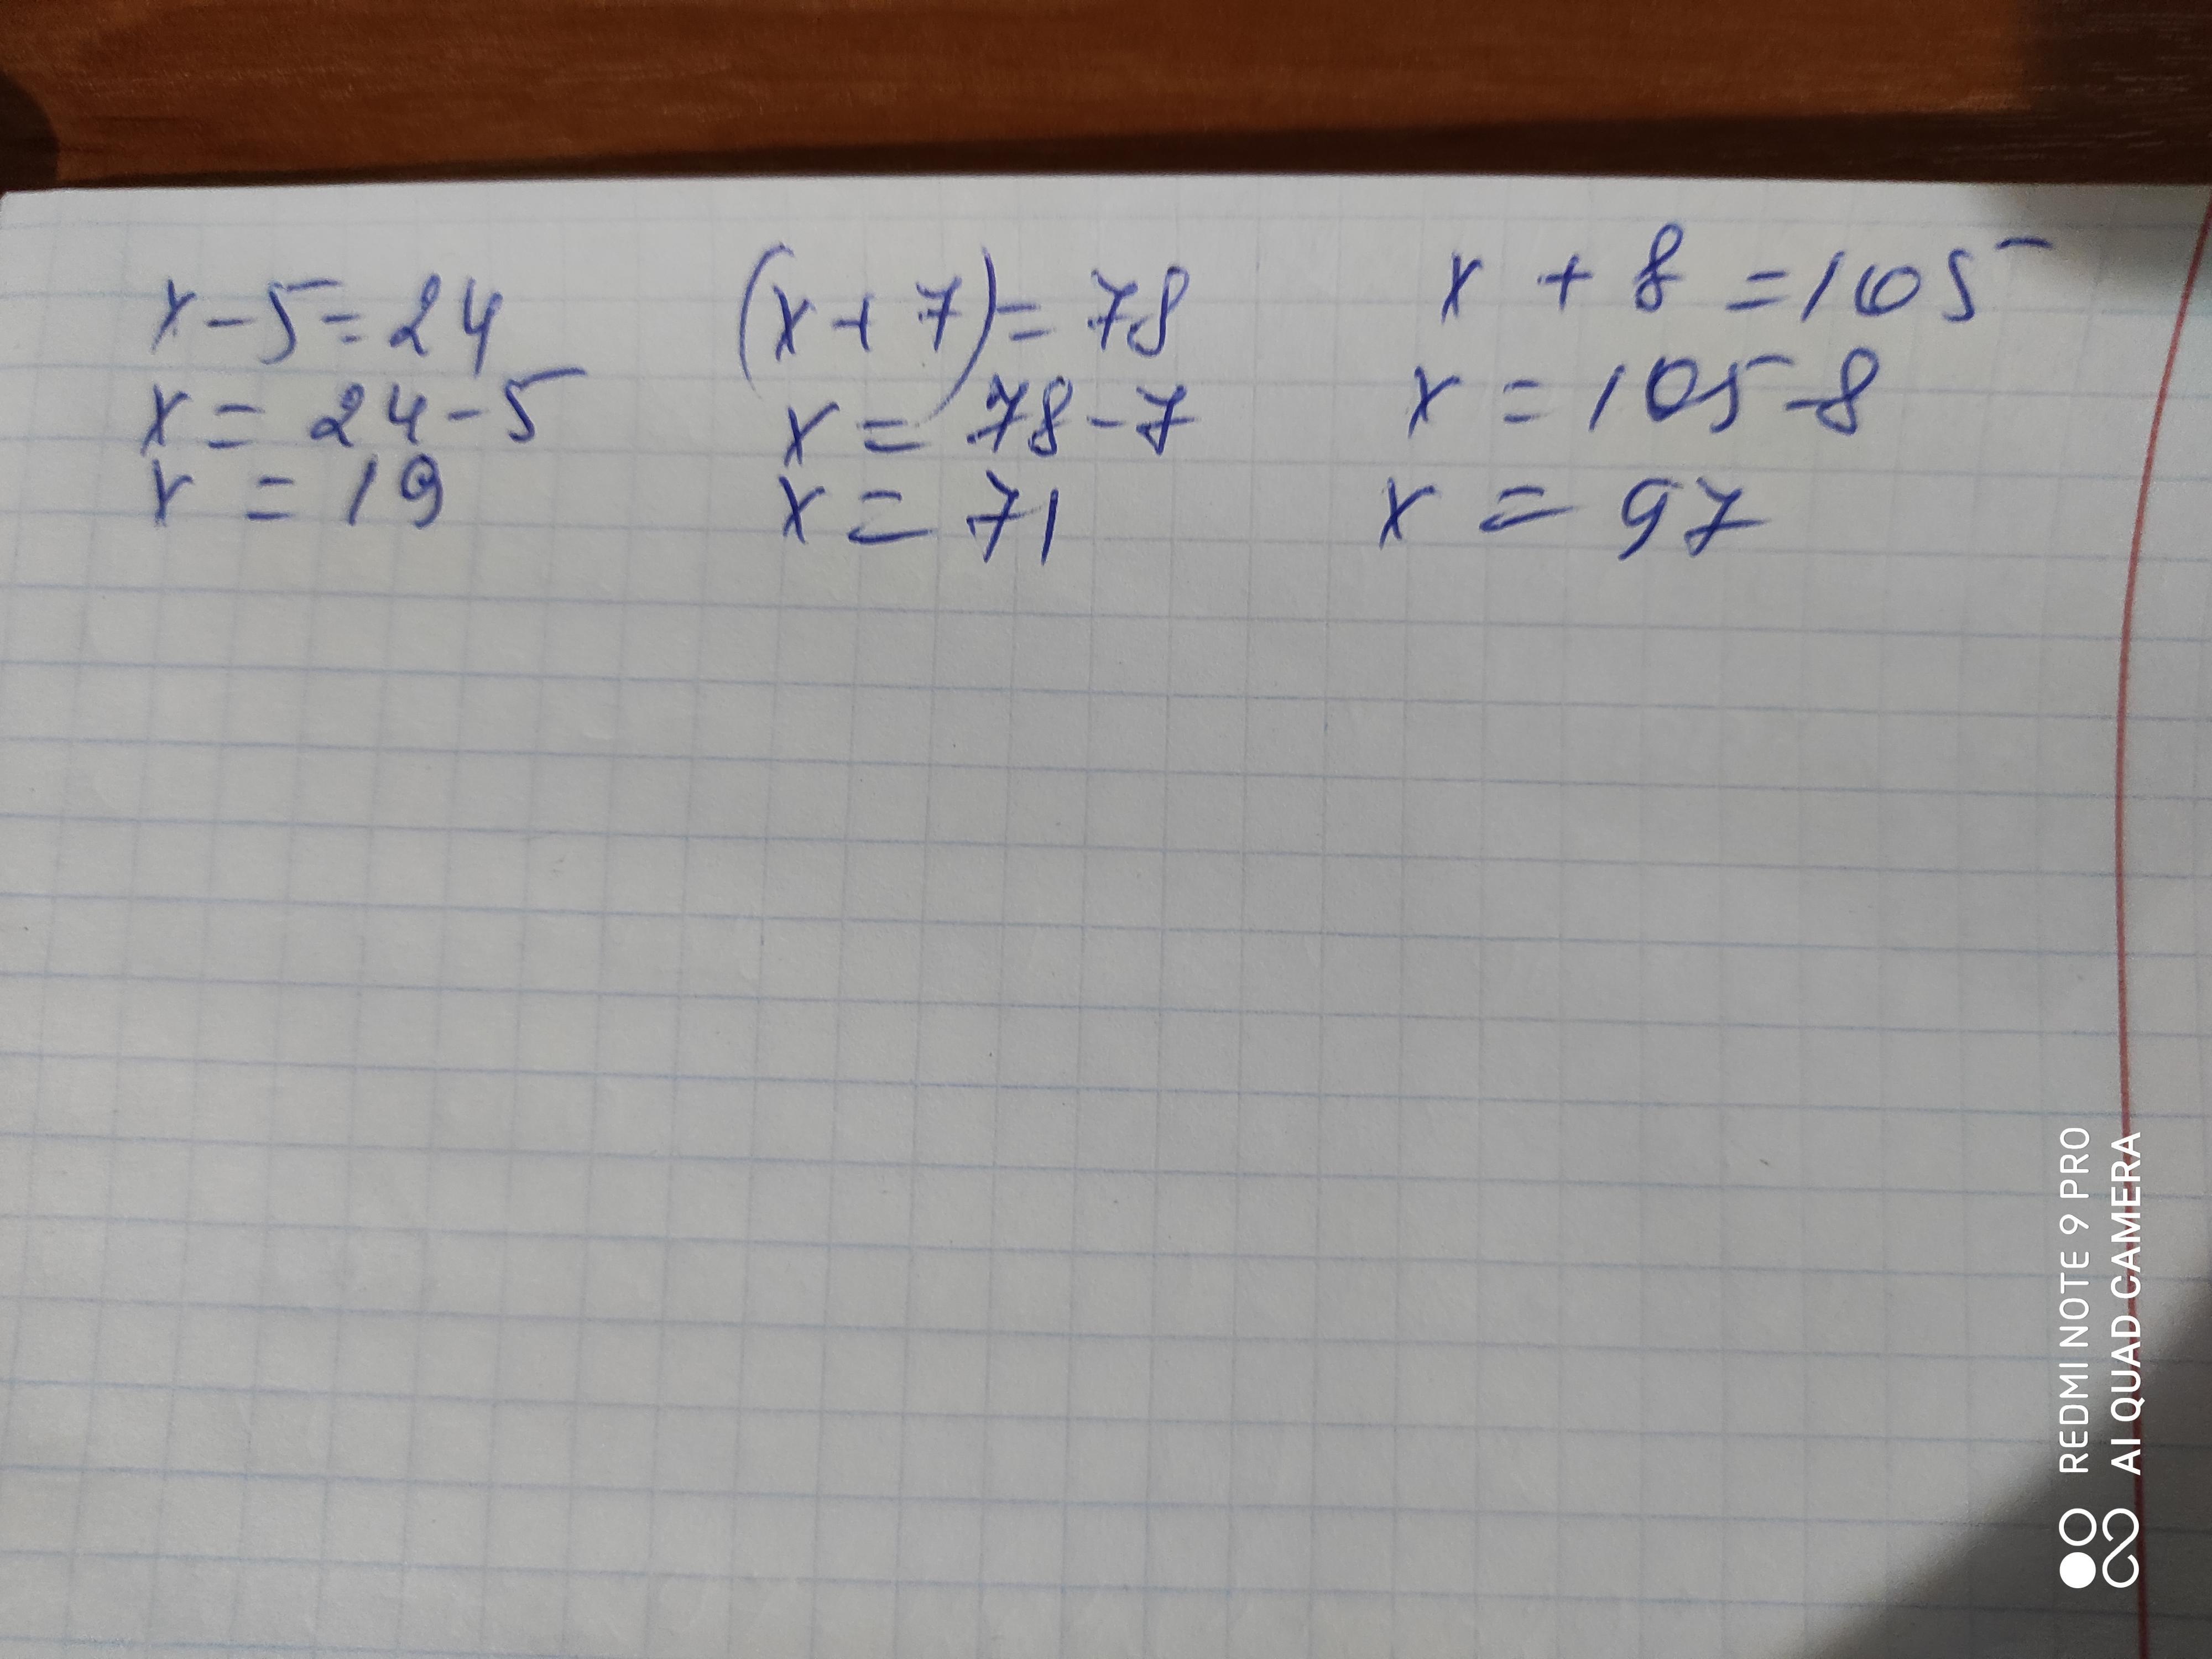 x-5=24
x=24-5
x=19
(x+7)=78
x=78-7
x=71
x+8=105
x=105-8
x=97
REDMI NOTE 9 PRO
AI QUAD CAMERA